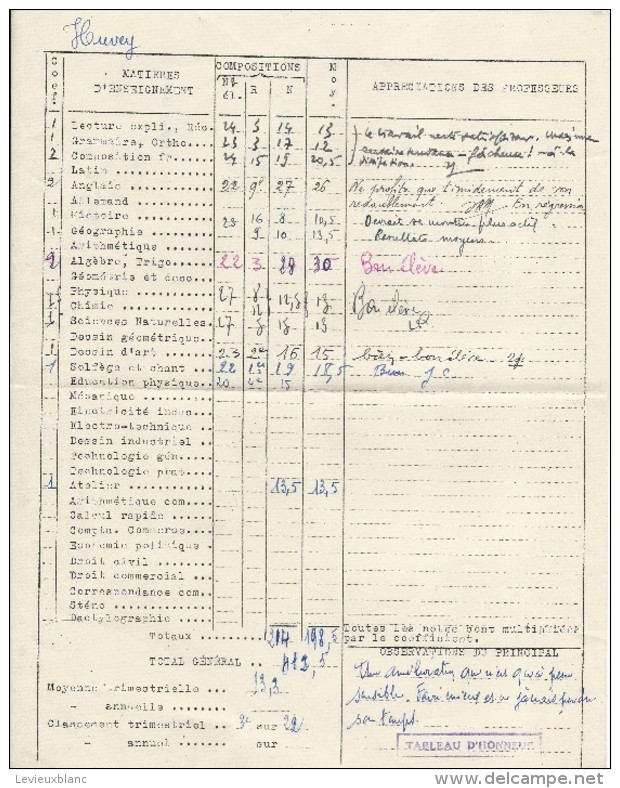 Huvey
Coef.
MATIERES D'ENSEIGNEMENT
COMPOSITIONS
Nb él. R N
Moy.
APPRECIATIONS DES PROFESSEURS
1 Lecture expli., Réc. 24 3 14 13
1 Grammaire, Ortho... 23 3 17 12
2 Composition fr... 24 15 19 20,5
Latin
2 Anglais 22 9e 27 26 Ne profite que timidement de son
Allemand redoublement En régression
1 Histoire 23 16 8 10,5 Devrait se montrer plus actif.
1 Géographie 9 10 13,5 Résultats moyens
Arithmétique
2 Algèbre, Trigo... 22 3 28 30 Bon élève
Géométrie et desc..
Physique 27 8 12,5 13 Bon élève
Chimie
1 Sciences Naturelles. 27
Dessin géométrique..
1 Dessin d'art 23 2e 16 15 bon élève
1 Solfège et chant ... 22 19 18,5 Bien J C
Education physique.. 20 4e 15
Mécanique
Electricité indus...
Electro-technique ..
Dessin industriel ..
Technologie gén.....
Technologie prat....
1 Atelier 13,5 13,5
Arithmétique com....
Calcul rapide ...
Compta. Commerce...
Economie politique .
Droit civil ...
Droit commercial ...
Correspondance com..
Sténo
Dactylographie ...
Totaux 214 198,5
Toutes les notes sont multipliées
par le coefficient.
TOTAL GÉNÉRAL .. 412,5
OBSERVATIONS DU PRINCIPAL
Moyenne trimestrielle ... 13,3
Une amélioration qui n'est qu'à peine
- annuelle
sensible.
Classement trimestriel .. 3e sur 22
son temps.
- annuel ...... sur
TABLEAU D'HONNEUR
Levieuxblanc
delcampe.net